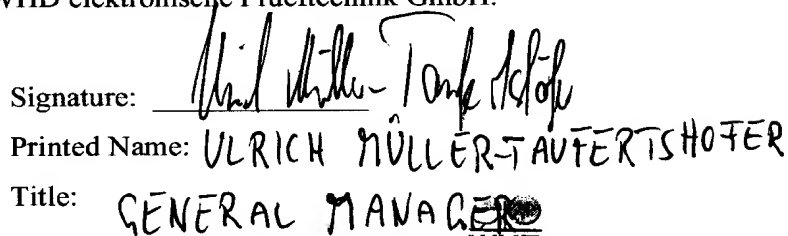 elektronische Prueftechnik GmbH.
Signature:
Printed Name: ULRICH MÜLLER-TAUFERTSHOFER
Title: GENERAL MANAGER